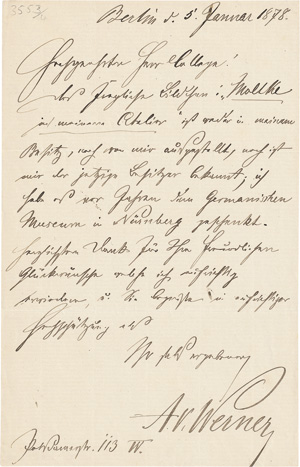 Berlin d. 5 Januar 1878.
Hochgeehrter Herr College!
Das fragliche Bildchen: "Moltke
in meinem Atelier" ist weder in meinem
Besitz, noch von mir ausgestellt, noch ist
mir der jetzige Besitzer bekannt; ich
habe es vor Jahren dem Germanischen
Museum in Nürnberg geschenkt.
Herzlichsten Dank für Ihre freundlichen
Glückwünsche welche ich aufrichtig
erwiedere, u. Sie in aufrichtiger
Hochschätzung als
Ihr ergebener
A v. Werner
Potsdamerstr. 113 W.